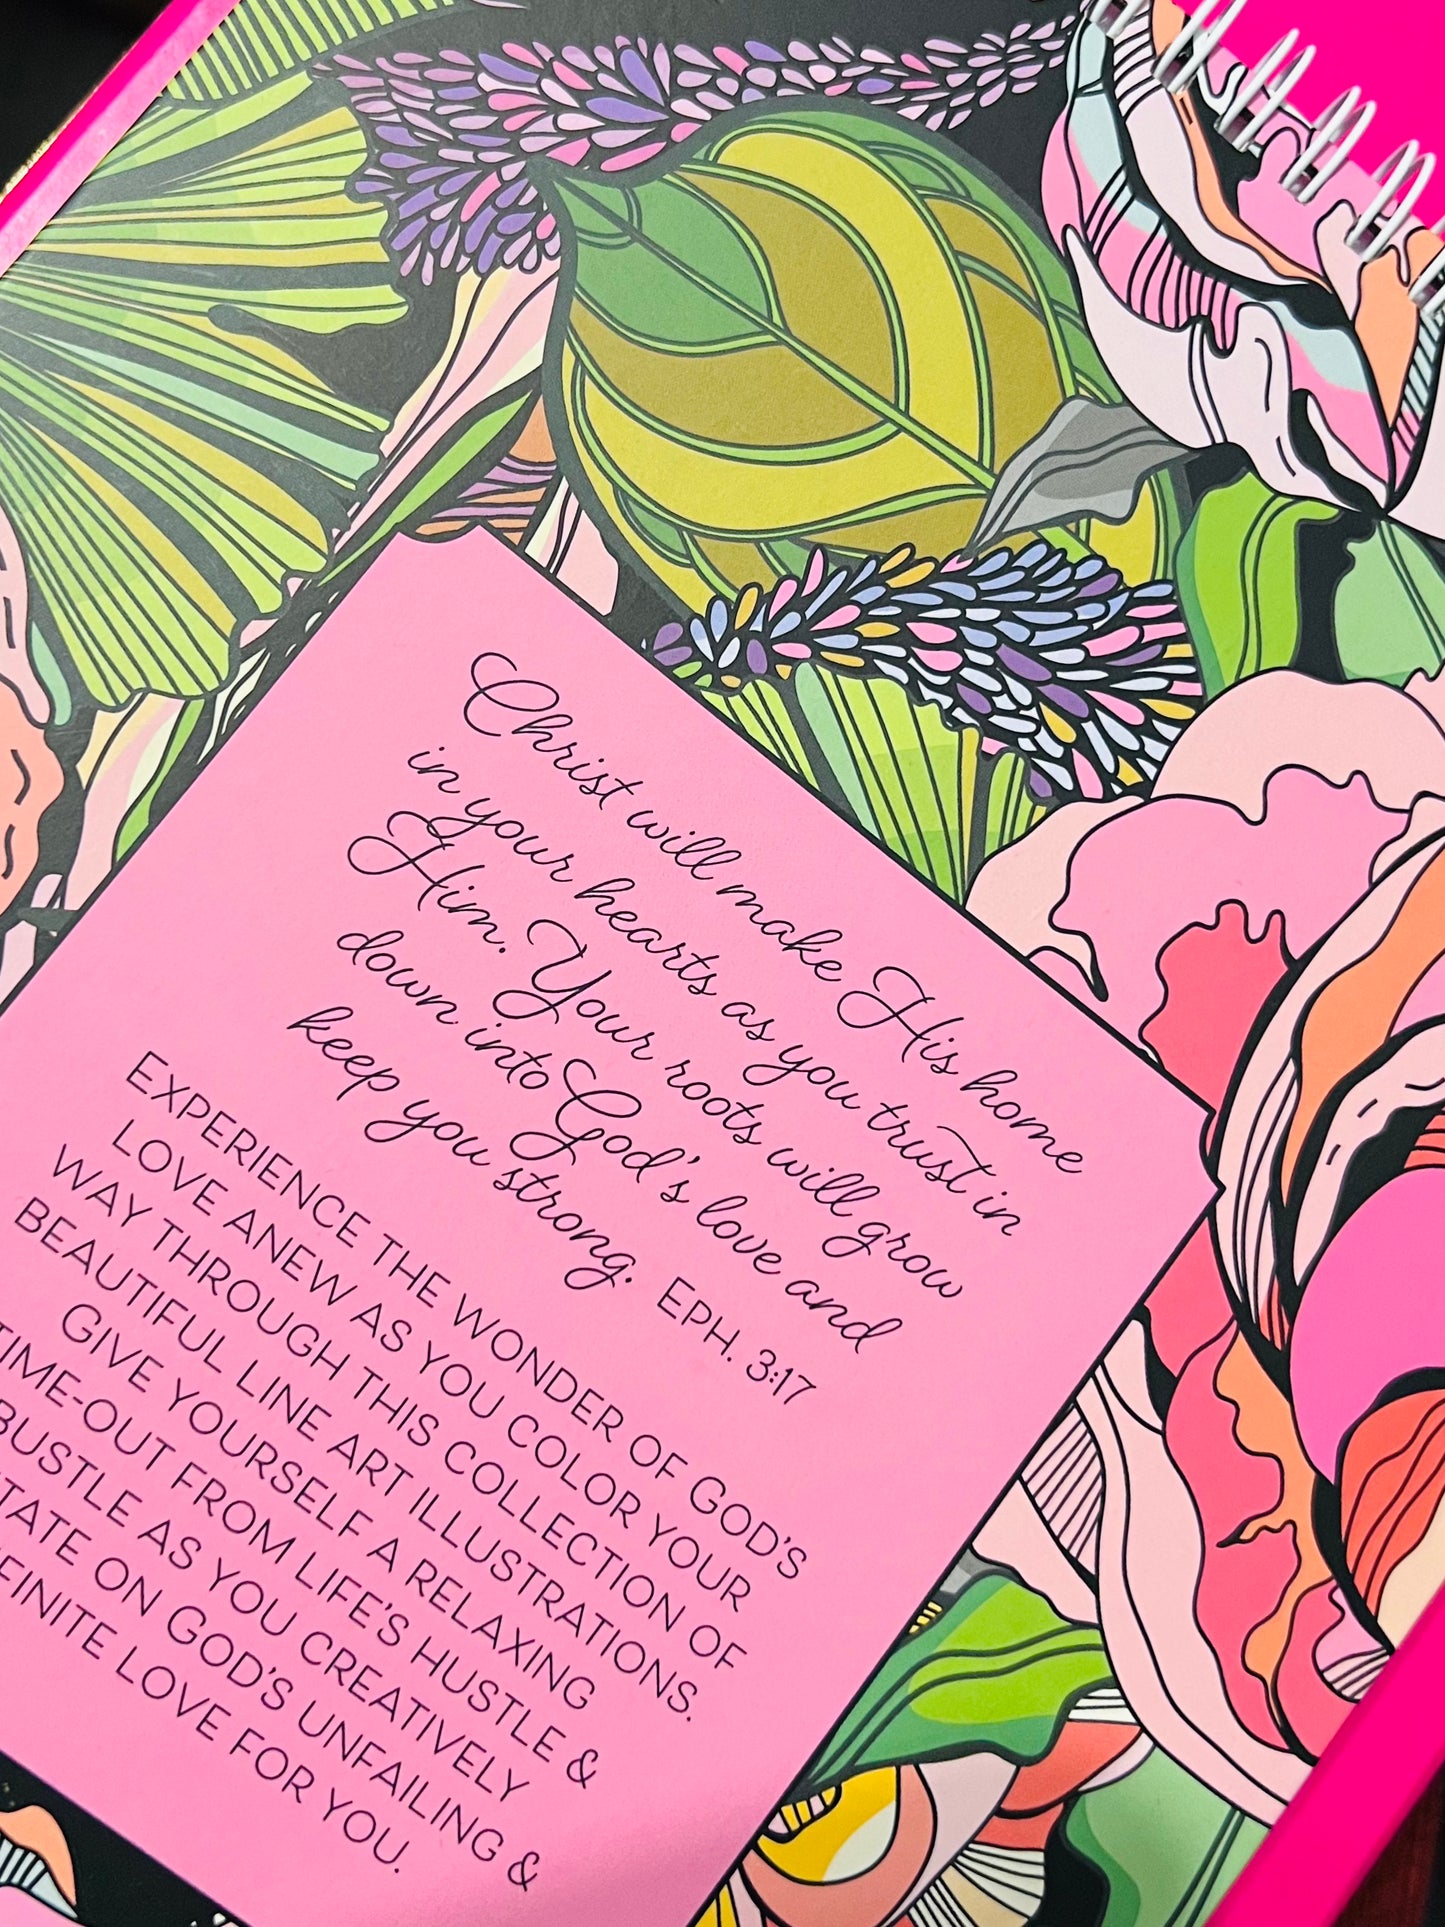 Christ will make His home
in your hearts as you trust in
Him. Your roots will grow
down into God's love and
keep you strong. EPH. 3:17
EXPERIENCE THE WONDER OF GOD'S
LOVE ANEW AS YOU COLOR YOUR
WAY THROUGH THIS COLLECTION OF
BEAUTIFUL LINE ART ILLUSTRATIONS.
GIVE YOURSELF A RELAXING
TIME-OUT FROM LIFE'S HUSTLE &
BUSTLE AS YOU CREATIVELY
ON GOD'S UNFAILING &
LOVE FOR YOU.